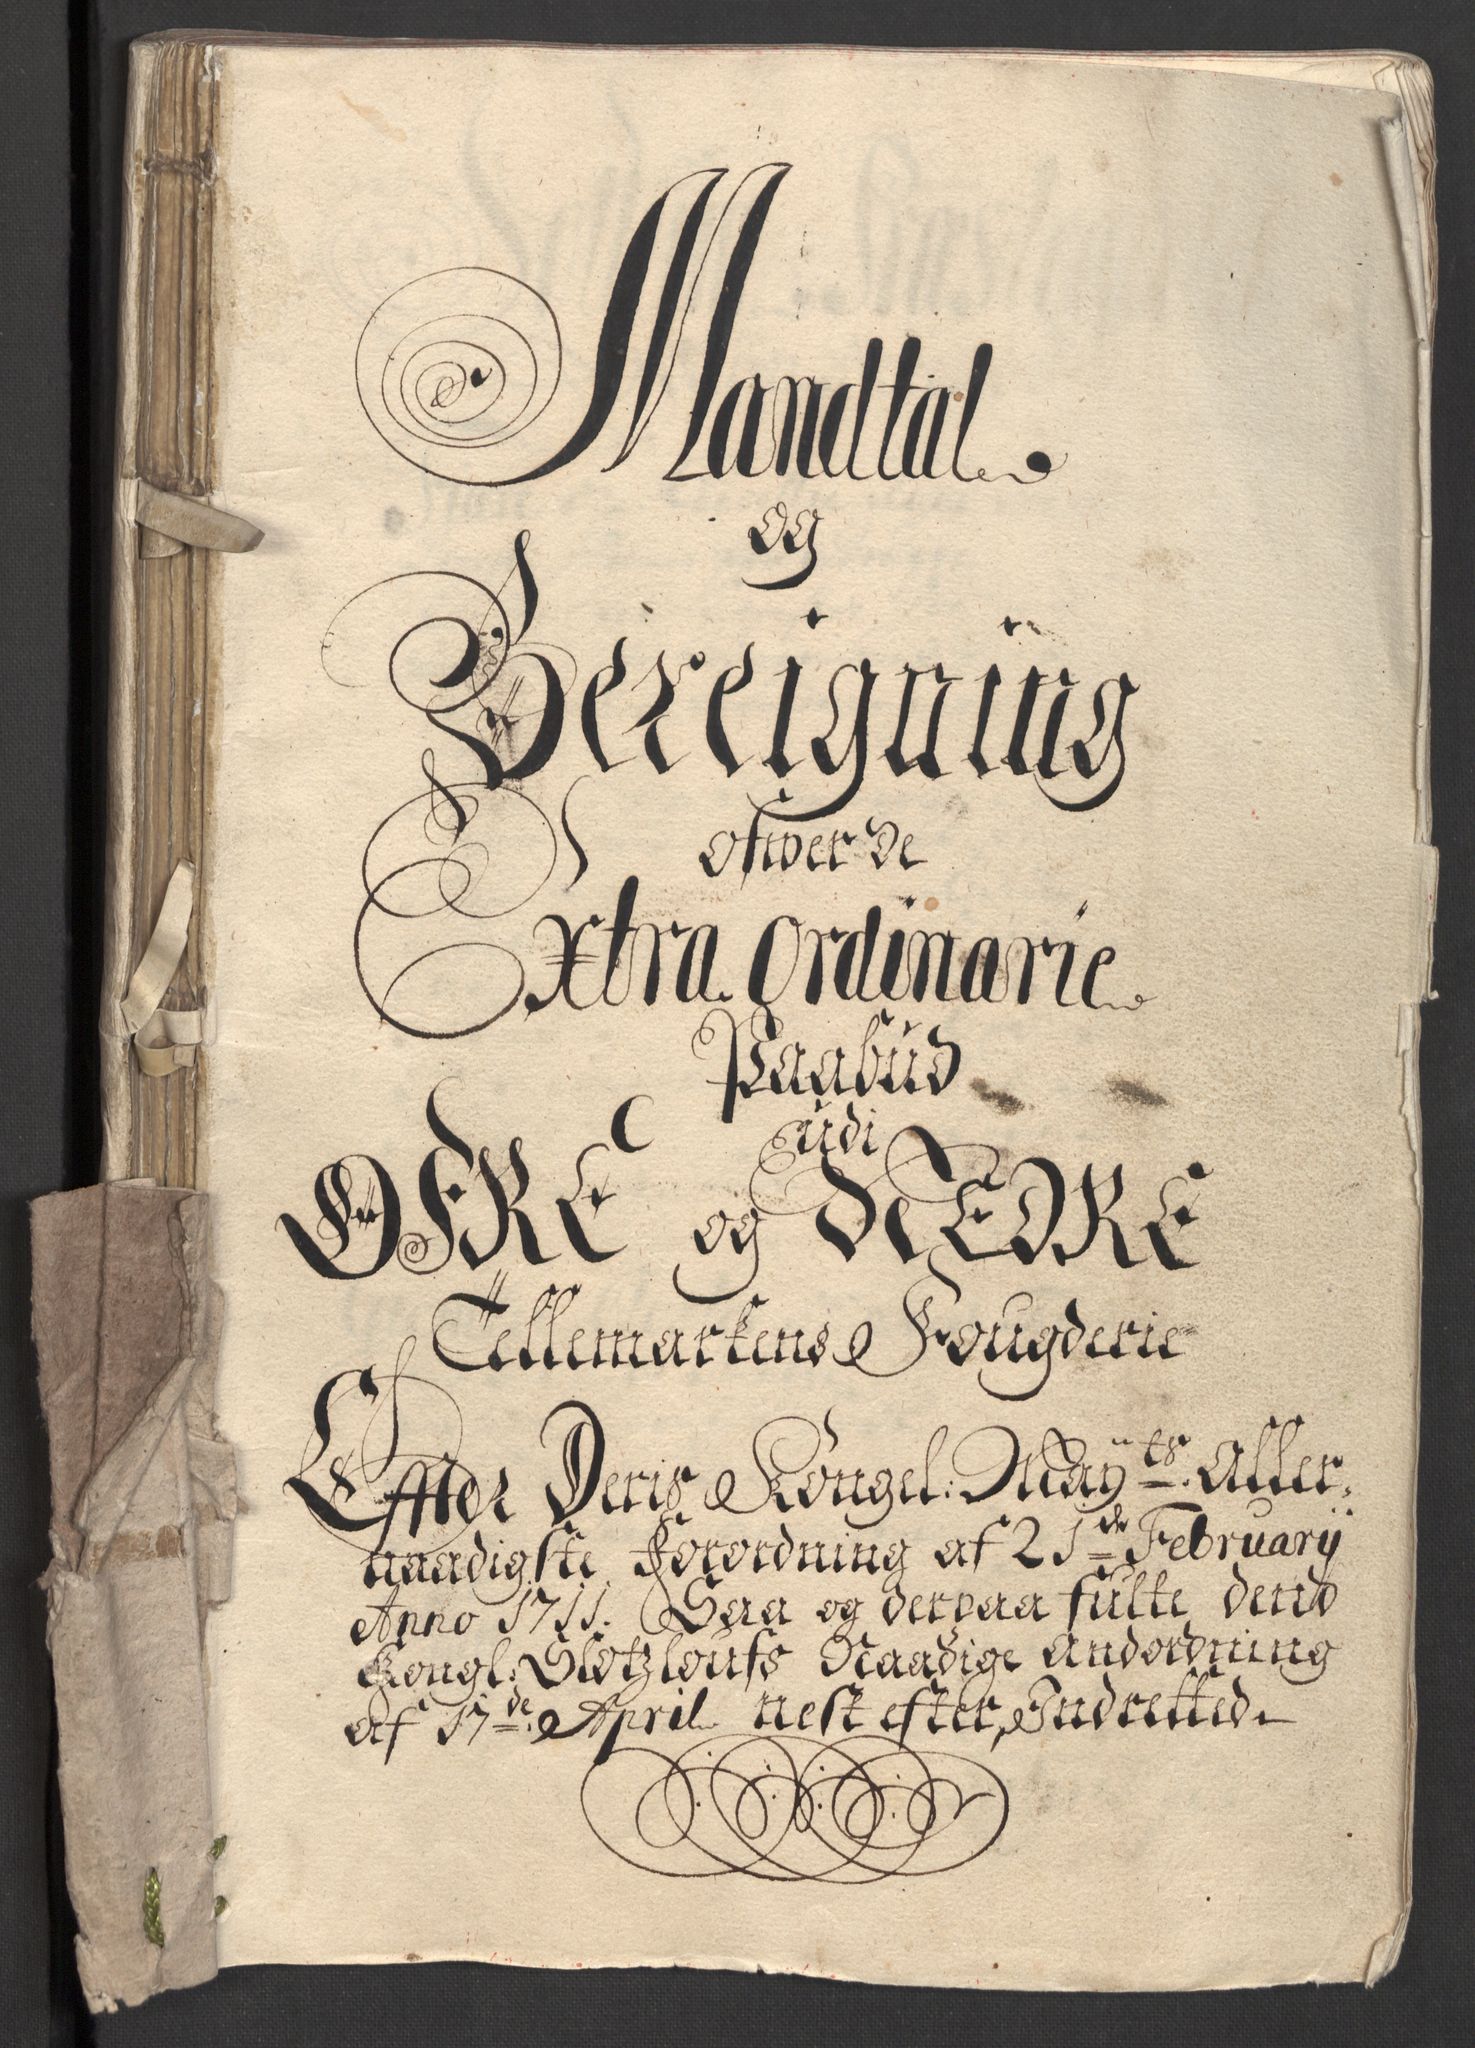 Mandtal
og
Bereigning
ofwer de
Extra Ordinarie
Paabüd
üdi
ØFRE og NEDRE
Tellemarkens Fougderie
Effter Deris Kongel: Mayts. Aller,
naadigste Forordning af 21de Februarij
Anno 1711. Saa og derpaa fulte dend
Kongl: Slotzloufs Naadige Andordning
af 17de April nest efter, Indretted